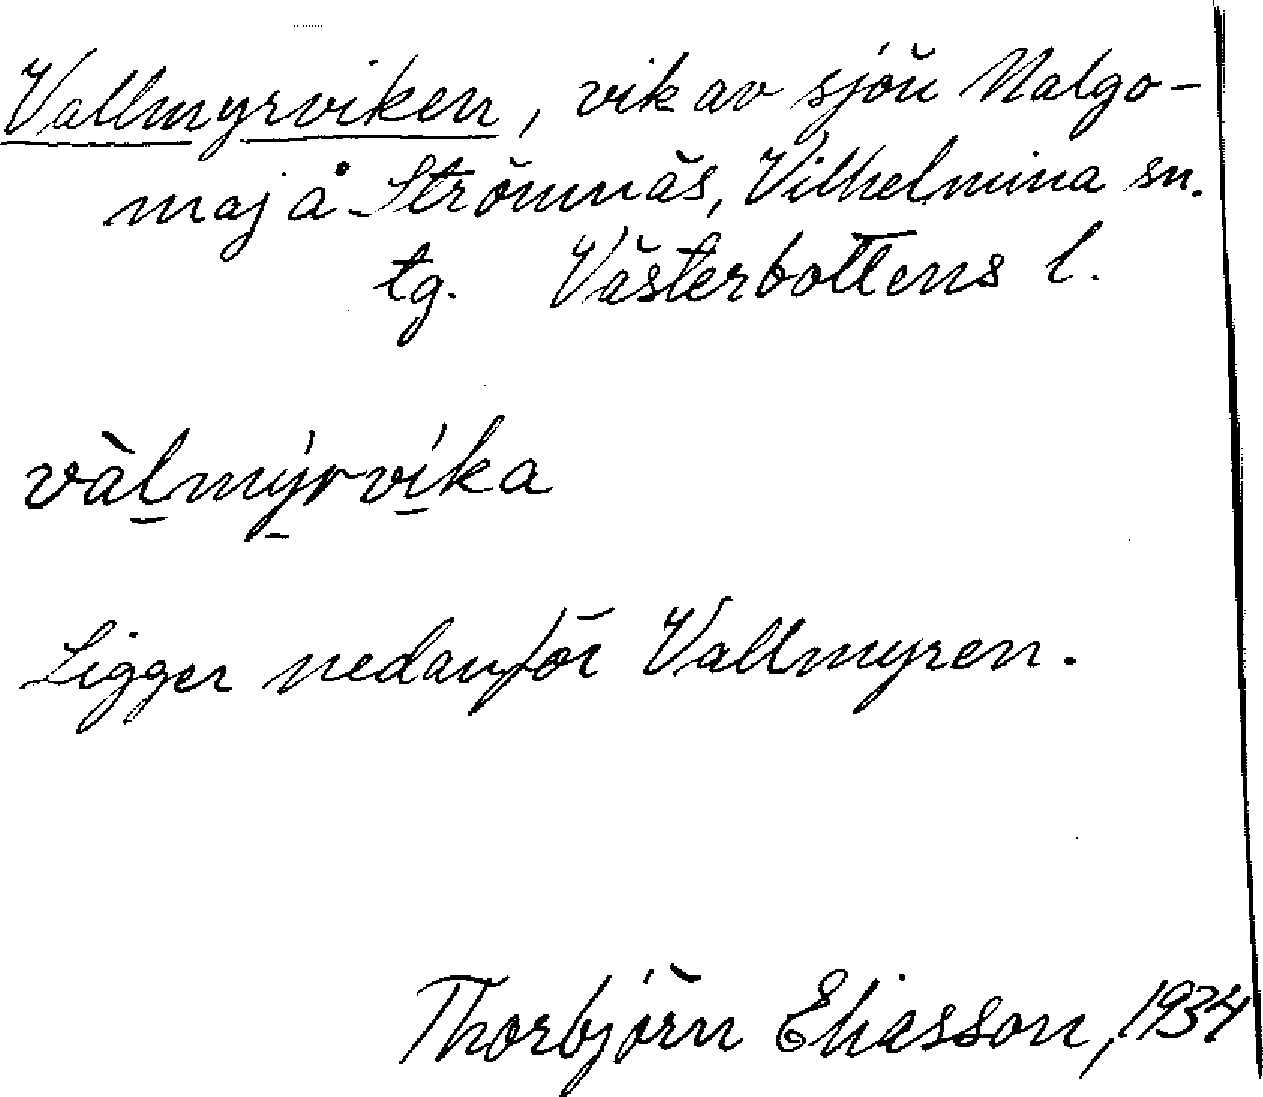 Vallmyrviken, vik av sjön Malgo-
maj å Strömnäs, Vilhelmina sn.
tg. Västerbottens l.
vàl̲mý̲rví̲ka
Ligger nedanför Vallmyren.
Thorbjörn Eliasson, 1934